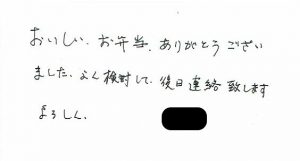 おいしい、お弁当、ありがとうござい
ました、よく検討して、後日連絡致します
よろしく、